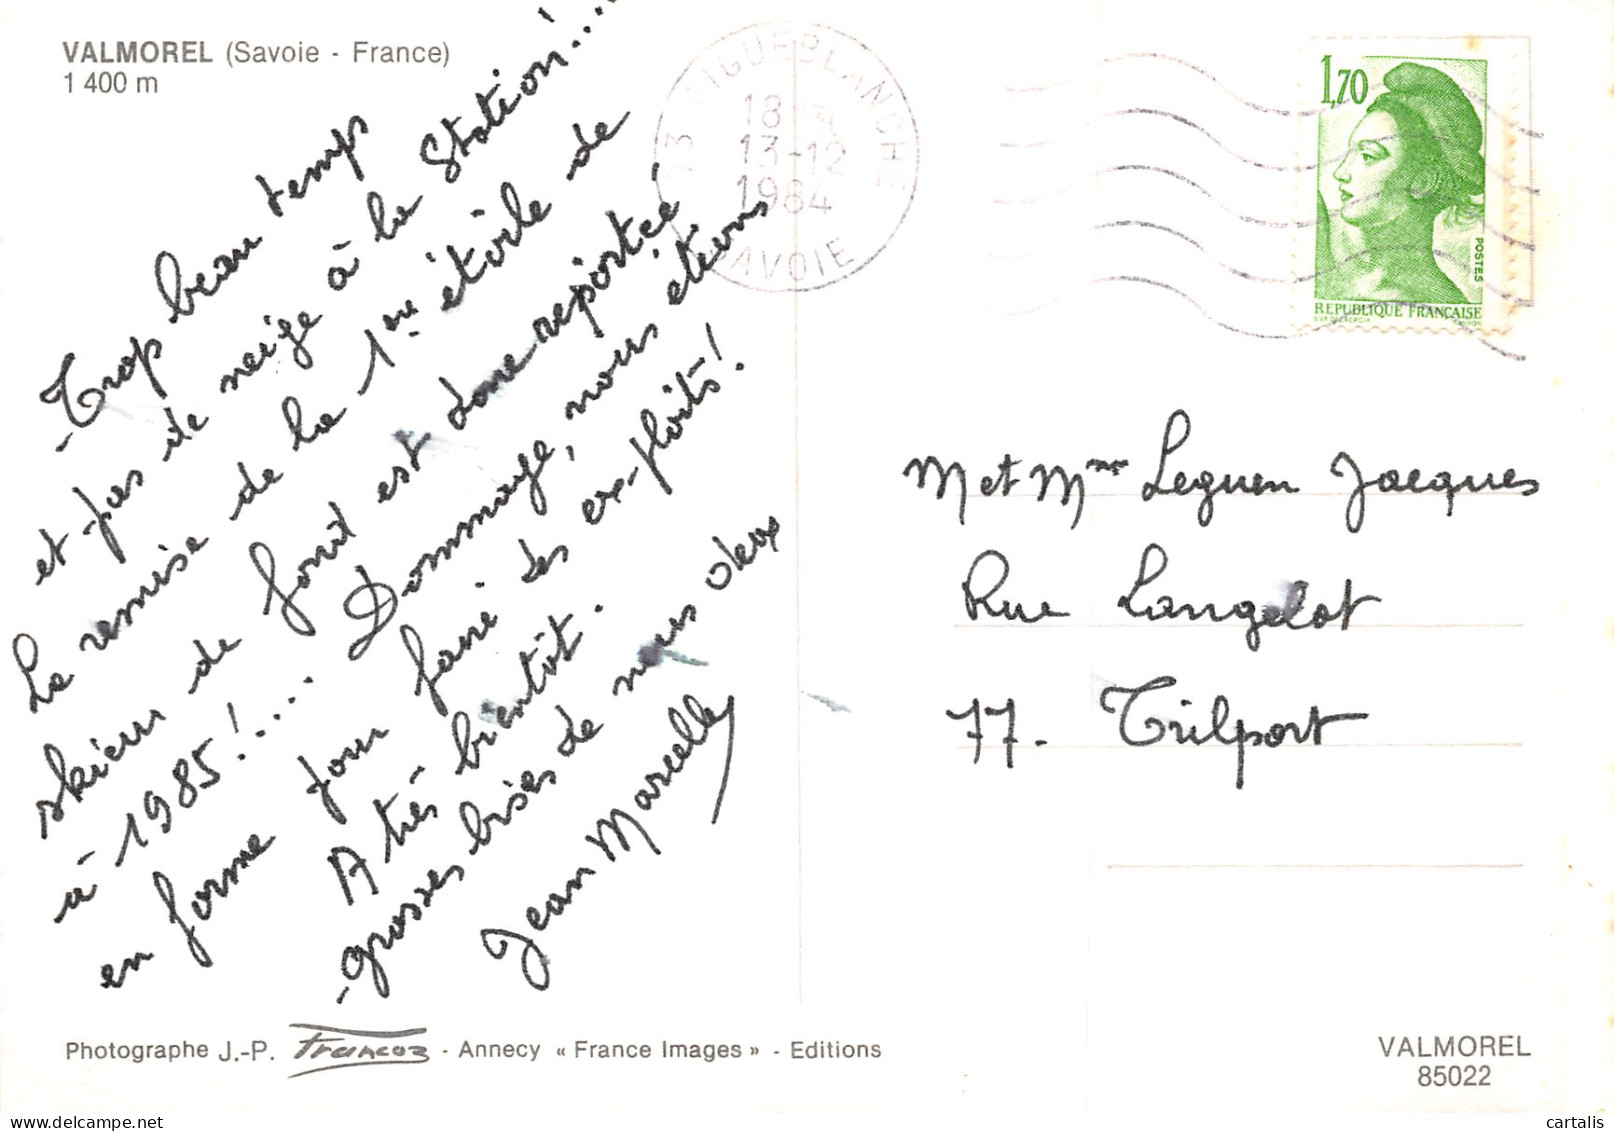 VALMOREL (Savoie - France)
1 400 m
- Trop beau temps
et pas de neige à la Station....
La remise de la 1ère étoile de
skieur de fond est donc reportée
à 1985!.... Dommage, nous étions
en forme pour faire des ex-ploits!
A très bientôt.
- grosses bises de nous deux
Jean Marcelly
73 AIGUEBLANCHE
18-30
13-12
1984
SAVOIE
1,70
POSTES
REPUBLIQUE FRANÇAISE
M et Mme Leguen Jacques
Rue Langelot
77. Trilport
Photographe J.-P. Francoz - Annecy « France Images » - Editions
VALMOREL
85022
cartalis